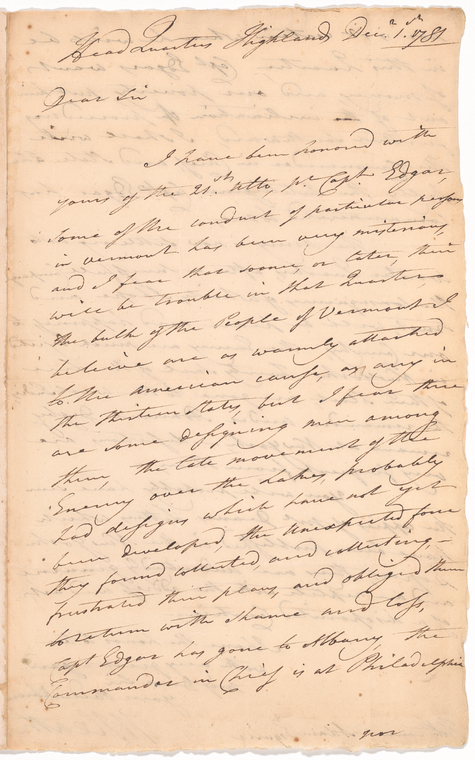 Head Quarters Highlands Decr. 1.st 1781
Dear Sir
I have been honored with
yours of the 21.st Ulto, pr Capt. Edgar,
some of the conduct of particular persons
in vermont has been very misterious,
and I fear that sooner, or later, their
will be trouble in that Quarter,
the bulk of the People of Vermont I
beleive are as warmly attached
to the American cause, as any in
the thirteen States, but I fear there
are some designing men among
them, the late movement of the
Enemy over the Lakes, probably
had designs which have not yet
been developed, the Unexpected force
they found collected, and collecting, -
frustrated their plans, and obliged them
to return with shame and loss,
Capt Edgar has gone to Albany, the
Commander in Chief is at Philadelphia
nor